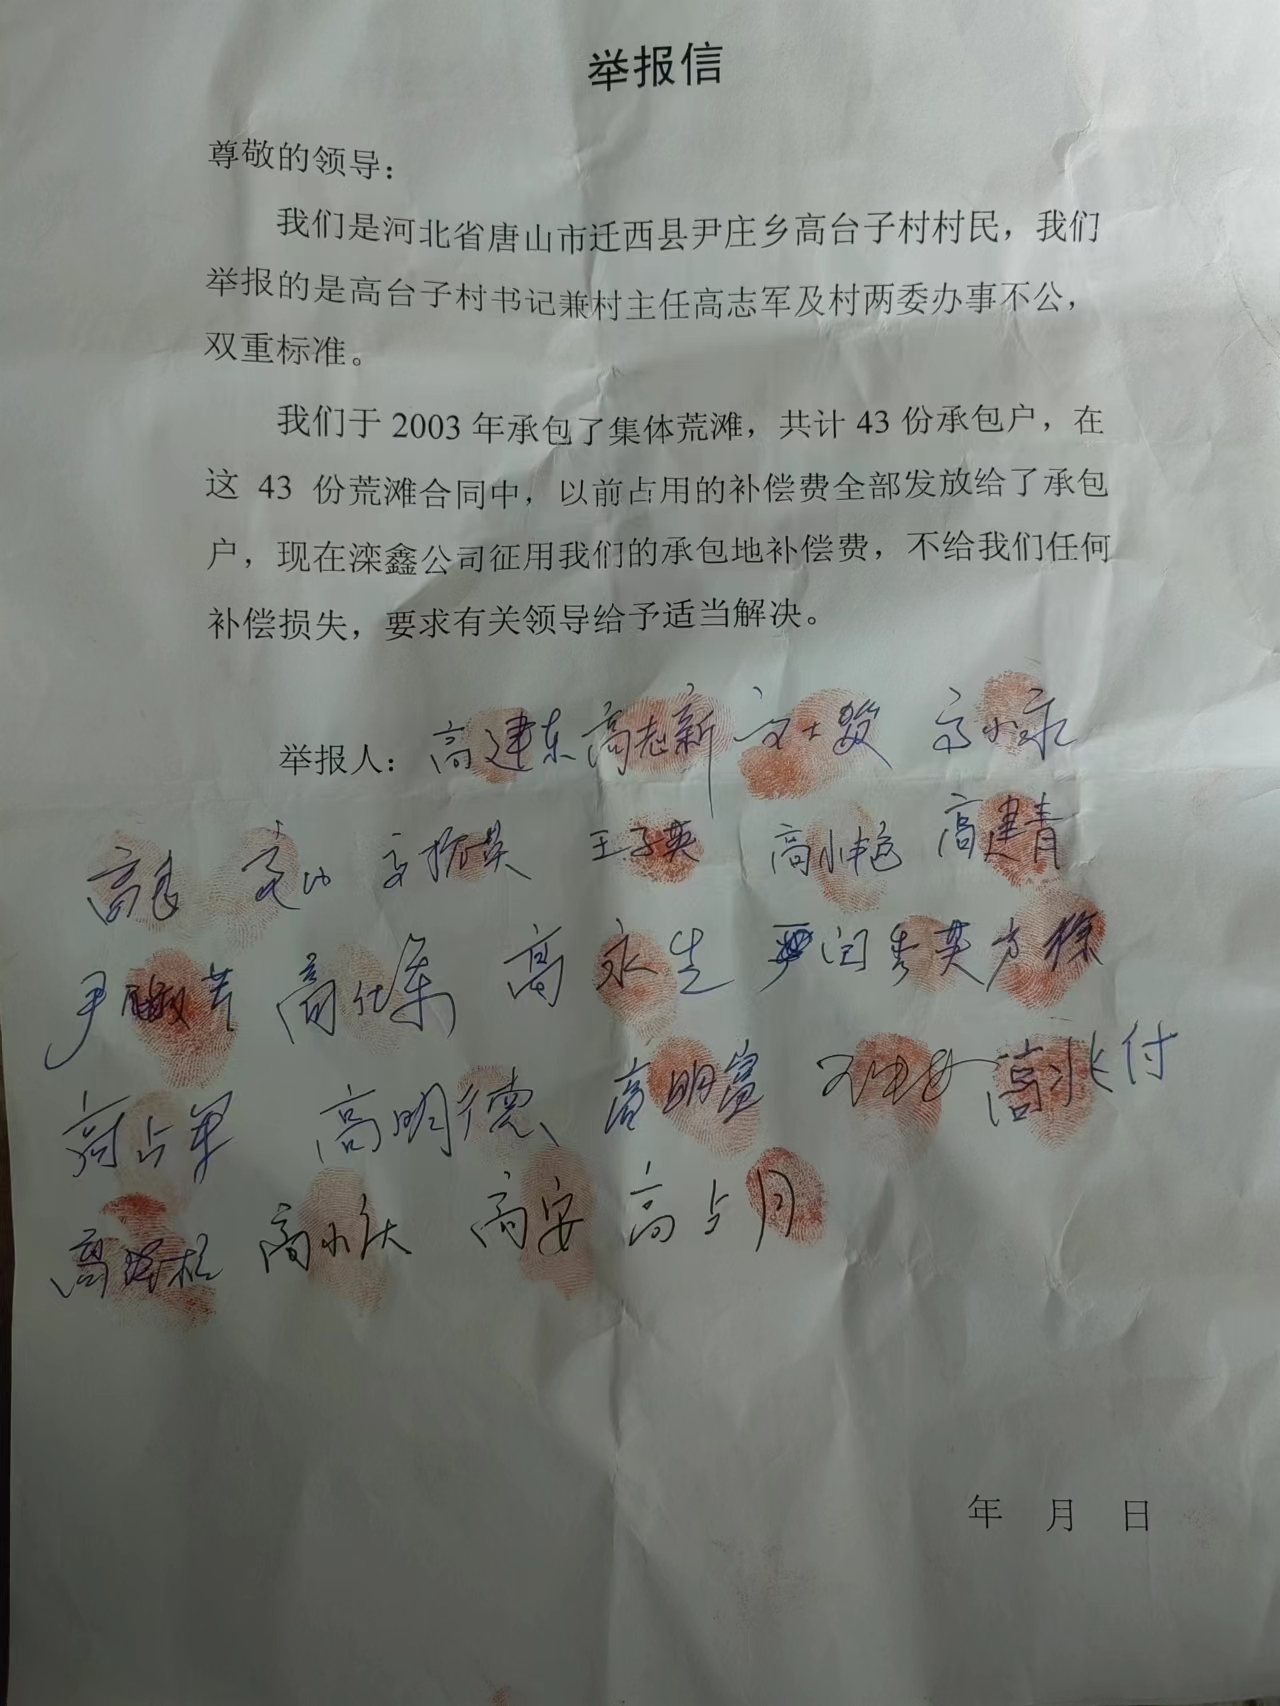 举报信
尊敬的领导：
我们是河北省唐山市迁西县尹庄乡高台子村村民，我们
举报的是高台子村书记兼村主任高志军及村两委办事不公，
双重标准。
我们于 2003 年承包了集体荒滩，共计 43 份承包户，在
这 43 份荒滩合同中，以前占用的补偿费全部发放给了承包
户，现在滦鑫公司征用我们的承包地补偿费，不给我们任何
补偿损失，要求有关领导给予适当解决。
举报人：高建东 高志新 高小永
王子英 高小艳 高建青
高仕军 高永生 闫秀英
高占军 高明德 高明富 高兆付
高小庆 高安 高占月
年 月 日